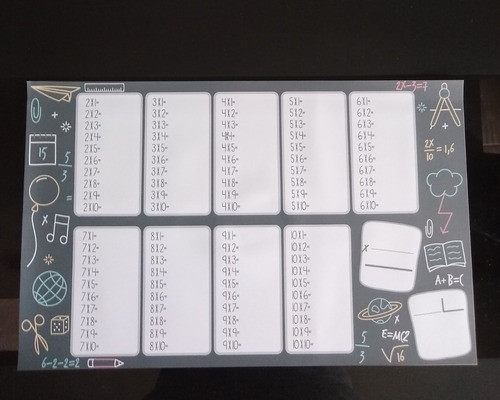 2X-3=7
2X1=
2X2=
2X3=
2X4=
2X5=
2X6=
2X7=
2X8=
2X9=
2X10=
3X1=
3X2=
3X3=
3X4=
3X5=
3X6=
3X7=
3X8=
3X9=
3X10=
4X1=
4X2=
4X3=
4X4=
4X5=
4X6=
4X7=
4X8=
4X9=
4X10=
5X1=
5X2=
5X3=
5X4=
5X5=
5X6=
5X7=
5X8=
5X9=
5X10=
6X1=
6X2=
6X3=
6X4=
6X5=
6X6=
6X7=
6X8=
6X9=
6X10=
15
5
3
=
X
+
+
2X
10
= 1,6
7X1=
7X2=
7X3=
7X4=
7X5=
7X6=
7X7=
7X8=
7X9=
7X10=
8X1=
8X2=
8X3=
8X4=
8X5=
8X6=
8X7=
8X8=
8X9=
8X10=
9X1=
9X2=
9X3=
9X4=
9X5=
9X6=
9X7=
9X8=
9X9=
9X10=
10X1=
10X2=
10X3=
10X4=
10X5=
10X6=
10X7=
10X8=
10X9=
10X10=
X
A+B=C
X
E=MC2
5
3
√16
6-2-2=2